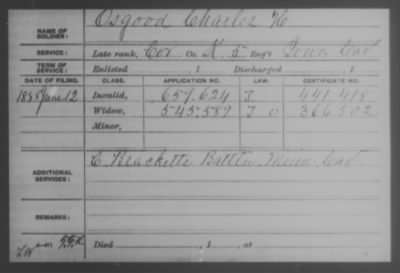 NAME OF SOLDIER: Osgood Charles H
SERVICE: Late rank, Cor Co. K, 5 Reg't Iowa Cav
TERM OF SERVICE: Enlisted , 1 Discharged , 1
DATE OF FILING. CLASS. APPLICATION NO. LAW. CERTIFICATE NO.
1888 June 12 Invalid, 659.624 J 441.418
Widow, 545.589 J 366.502
Minor,
ADDITIONAL SERVICES: C. Brackett's Battln Minn. Cav
REMARKS:
Died , 1 , at